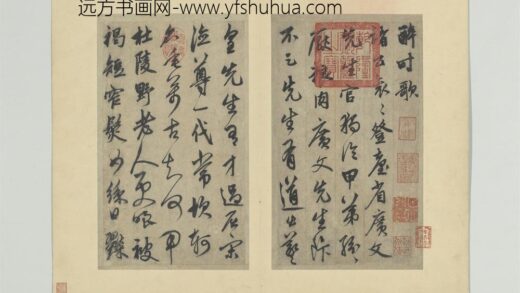 远方书画网-www.yfshuhua.com
醉時歌
諸公衮〻登臺省廣文
先生官獨冷甲第紛〻
厭粱肉廣文先生飯
不足先生有道出羲
皇先生有才過屈宋
德尊一代常坎軻
名垂萬古知何用
杜陵野老人更嗤被
褐短窄鬢如絲日糴